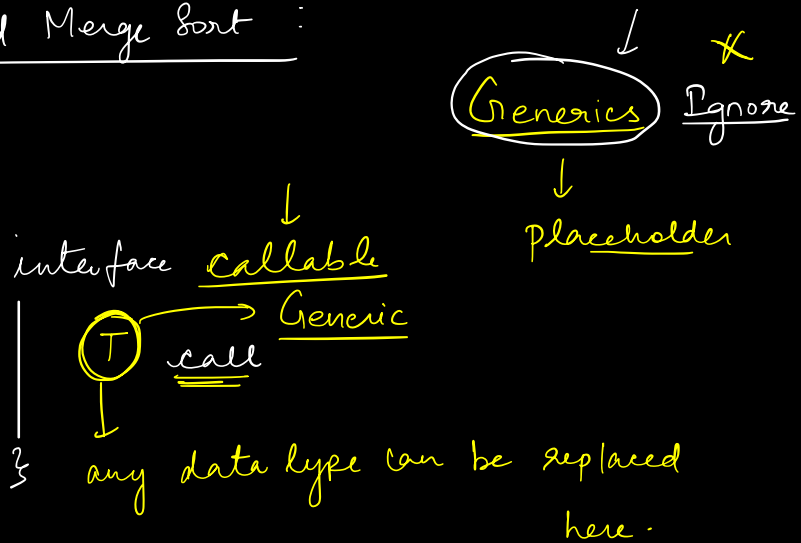 Merge Sort :
Generics Ignore
placeholder
interface callable
Generic
T call
} any data type can be replaced
here.